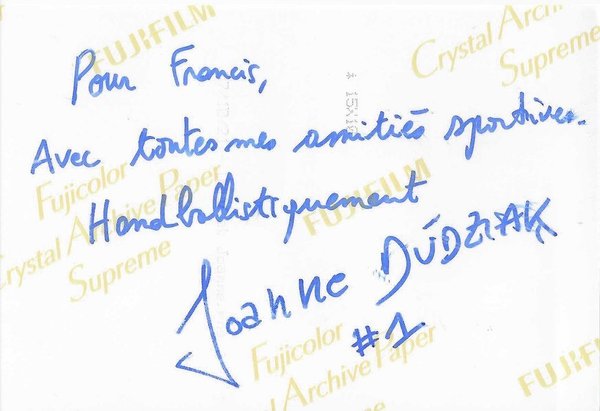 FUJIFILM
Crystal Archive
Supreme
Pour Francis,
Avec toutes mes amitiés sportives.
Handballistiquement
Joanne DÚDZIAK
#1
Fujicolor
Crystal Archive Paper
Supreme
FUJIFILM
Fujicolor
l Archive Paper
FUJIFILM